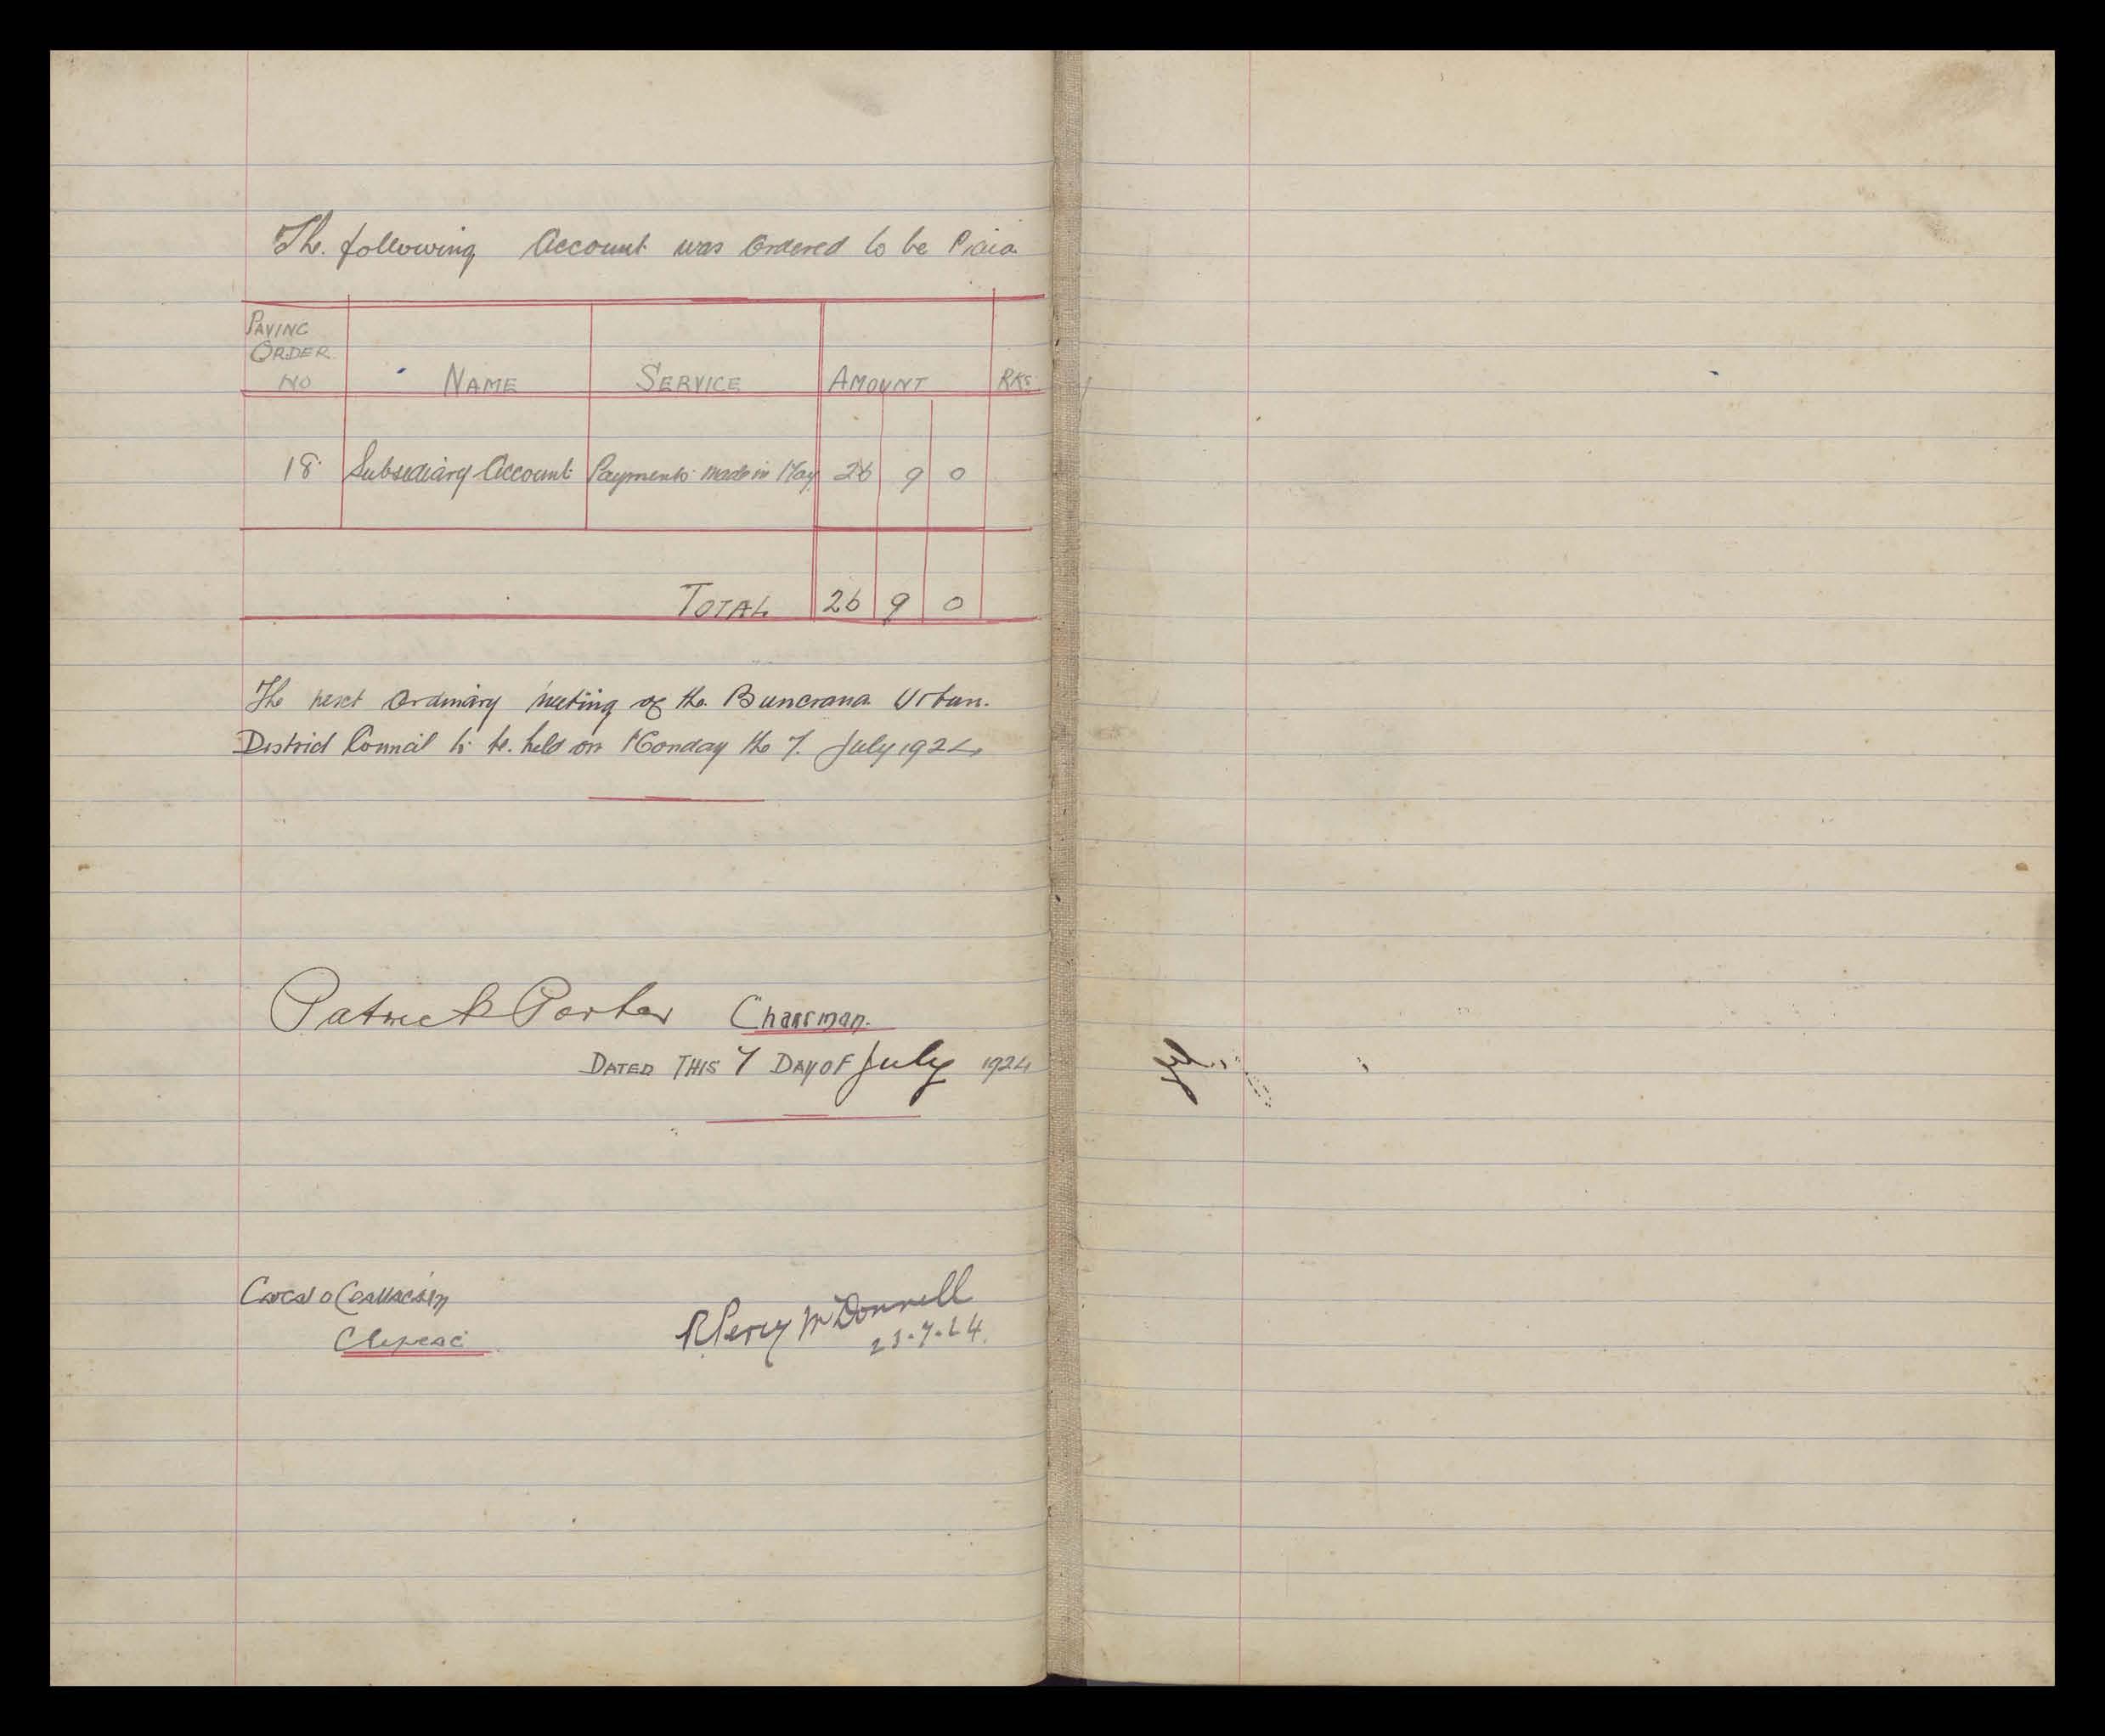 The following Account was Ordered to be Paid
PAYING
ORDER
NO NAME SERVICE AMOUNT RKS
18 Subsediary Account Payments made in May 26 9 0
TOTAL 26 9 0
The next Ordinary meeting of the Buncrana Urban
District Council to be held on Monday the 7. July 1924
Patrick Porter Chairman.
DATED THIS 7 DAY OF July 1924
R Percy McDonnell